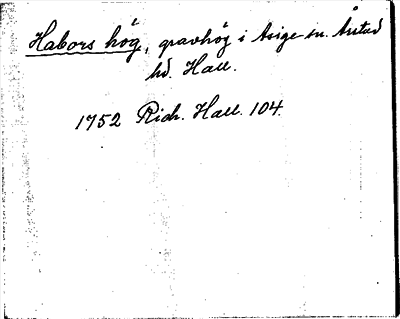 Habors hög, gravhög i Asige sn. Årstad
hd. Hall.
1752 Rich. Hall. 104.